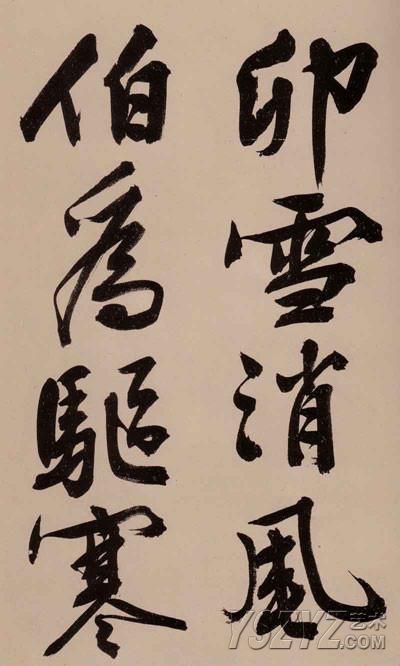 卯雪消風
伯為驅寒
YSZYZ艺术
.COM